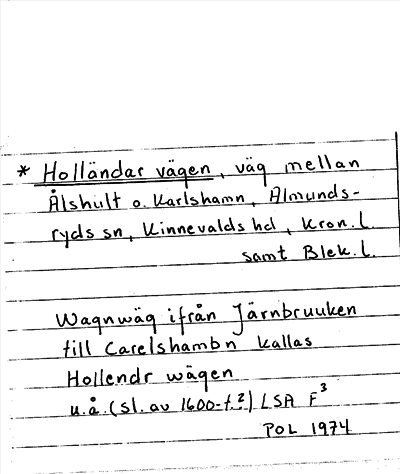 * Holländar vägen, väg mellan
Ålshult o. Karlshamn, Almunds-
ryds sn, Kinnevalds hd, Kron. l.
samt Blek. l.
Wagnwäg ifrån Järnbruuken
till Carelshambn kallas
Hollendr wägen
u.å. (sl. av 1600-t.?) LSA F3
POL 1974